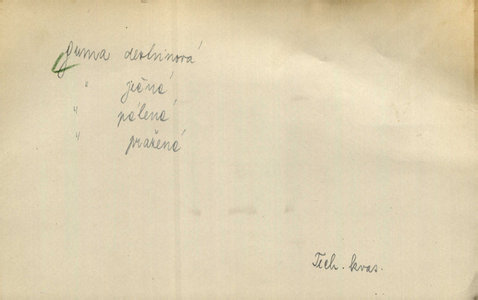 guma dextrinová
" ječná
" pálená
" pražená
Tech. kvas.